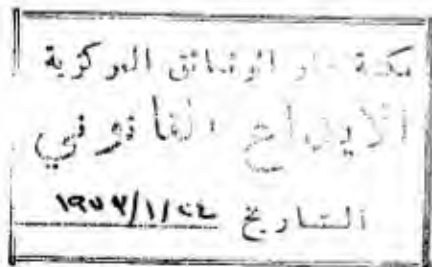 مكتبة دار الوثائق المركزية
الايداع القانوني
التاريخ